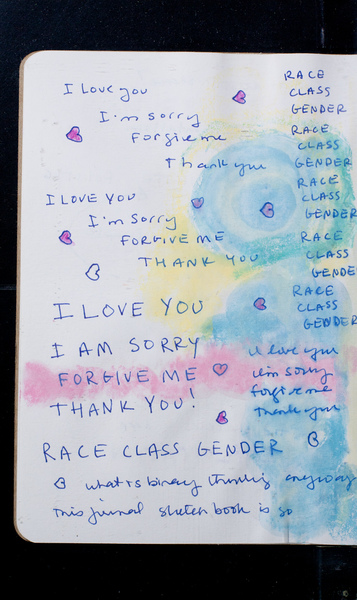 I Love you
I'm sorry
Forgive me
Thank you
I LOVE YOU
I'm Sorry
FORGIVE ME
THANK YOU
I LOVE YOU
I AM SORRY
FORGIVE ME
THANK YOU!
RACE
CLASS
GENDER
RACE
CLASS
GENDER
RACE
CLASS
GENDER
RACE
CLASS
GENDE
RACE
CLASS
GENDER
I love you
I'm sorry
forgive me
Thank you
RACE CLASS GENDER
what is binary thinking anyway
This journal sketch book is so